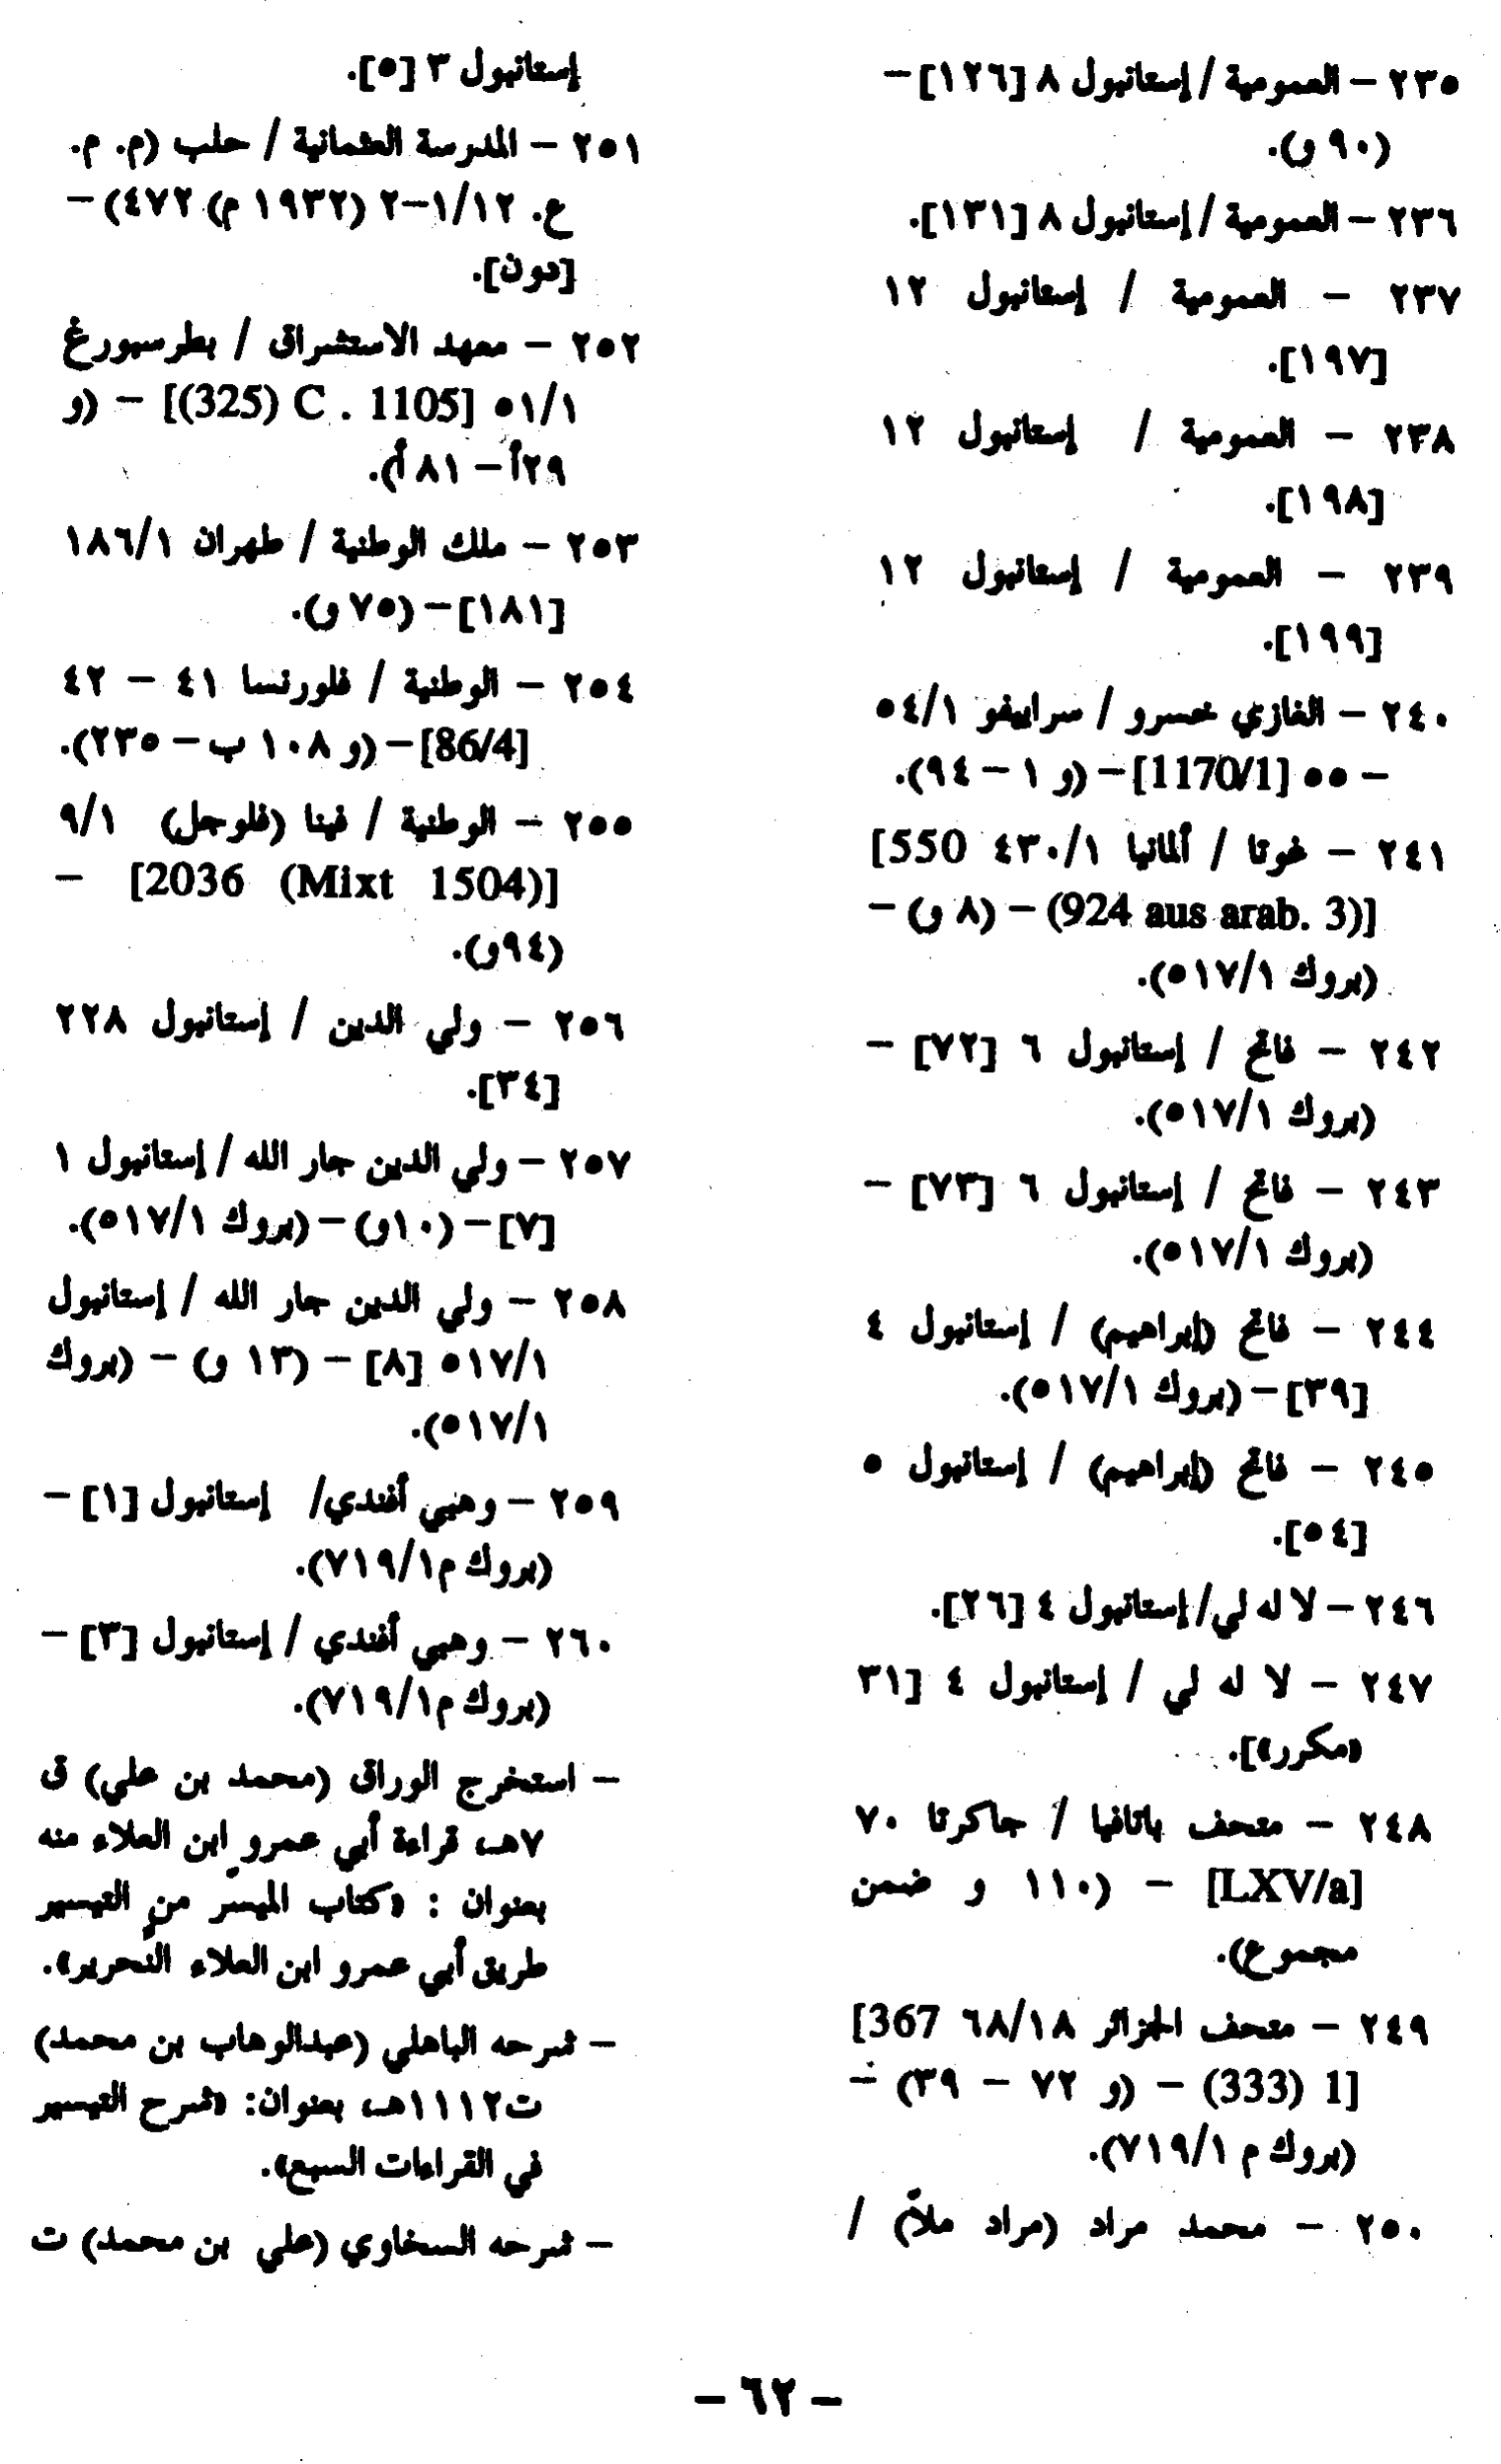 ٢٣٥ – العمومية / إستانبول ٨ [١٢٦] –
(٩٠ و).
٢٣٦ – العمومية / إستانبول ٨ [١٣١].
٢٣٧ – العمومية / إستانبول ١٢
[١٩٧].
٢٣٨ – العمومية / إستانبول ١٢
[١٩٨].
٢٣٩ – العمومية / إستانبول ١٢
[١٩٩].
٢٤٠ – الغازي خسرو / سراييفو ٥٤/١
– ٥٥ [1170/1] – (و ١ – ٩٤).
٢٤١ – غوتا / ألمانيا ٤٣٠/١ [550
(924 aus arab. 3)] – (٨ و) –
(بروك ٥١٧/١).
٢٤٢ – فاتح / إستانبول ٦ [٧٢] –
(بروك ٥١٧/١).
٢٤٣ – فاتح / إستانبول ٦ [٧٣] –
(بروك ٥١٧/١).
٢٤٤ – فاتح (إبراهيم) / إستانبول ٤
[٣٩] – (بروك ٥١٧/١).
٢٤٥ – فاتح (إبراهيم) / إستانبول ٥
[٥٤].
٢٤٦ – لا له لي / إستانبول ٤ [٢٦].
٢٤٧ – لا له لي / إستانبول ٤ [٣١
«مكرر»].
٢٤٨ – متحف باتافيا / جاكرتا ٧٠
[LXV/a] – (١١٠ و ضمن
مجموع).
٢٤٩ – متحف الجزائر ٦٨/١٨ [367
(333) 1] – (و ٧٢ – ٣٩) –
(بروك م ٧١٩/١).
٢٥٠ – محمد مراد (مراد ملاّ) /
إستانبول ٣ [٥].
٢٥١ – المدرسة العثمانية / حلب (م. م.
ع. ١/١٢–٢ (١٩٣٢ م) ٤٧٢) –
[دون].
٢٥٢ – معهد الاستشراق / بطرسبورغ
٥١/١ [(325) C . 1105] – (و
٢٩أ – ٨١أ).
٢٥٣ – ملك الوطنية / طهران ١٨٦/١
[١٨١] – (٧٥ و).
٢٥٤ – الوطنية / فلورنسا ٤١ – ٤٢
[86/4] – (و ١٠٨ ب – ٢٣٥).
٢٥٥ – الوطنية / فينا (فلوجل) ٩/١
[2036 (Mixt 1504)] –
(٩٤و).
٢٥٦ – ولي الدين / إستانبول ٢٢٨
[٣٤].
٢٥٧ – ولي الدين جار الله / إستانبول ١
[٧] – (١٠و) – (بروك ٥١٧/١).
٢٥٨ – ولي الدين جار الله / إستانبول
٥١٧/١ [٨] – (١٣ و) – (بروك
٥١٧/١).
٢٥٩ – وهبي أفندي/ إستانبول [١] –
(بروك م٧١٩/١).
٢٦٠ – وهبي أفندي / إستانبول [٣] –
(بروك م٧١٩/١).
– استخرج الوراق (محمد بن علي) ق
٧هـ قراءة أبي عمرو ابن العلاء منه
بعنوان : «كتاب الميسّر من التيسير
طريق أبي عمرو ابن العلاء النّحرير».
– شرحه الباهلي (عبدالوهاب بن محمد)
ت١١١٢هـ بعنوان: «شرح التيسير
في القراءات السبع».
– شرحه السخاوي (علي بن محمد) ت
– ٦٢ –